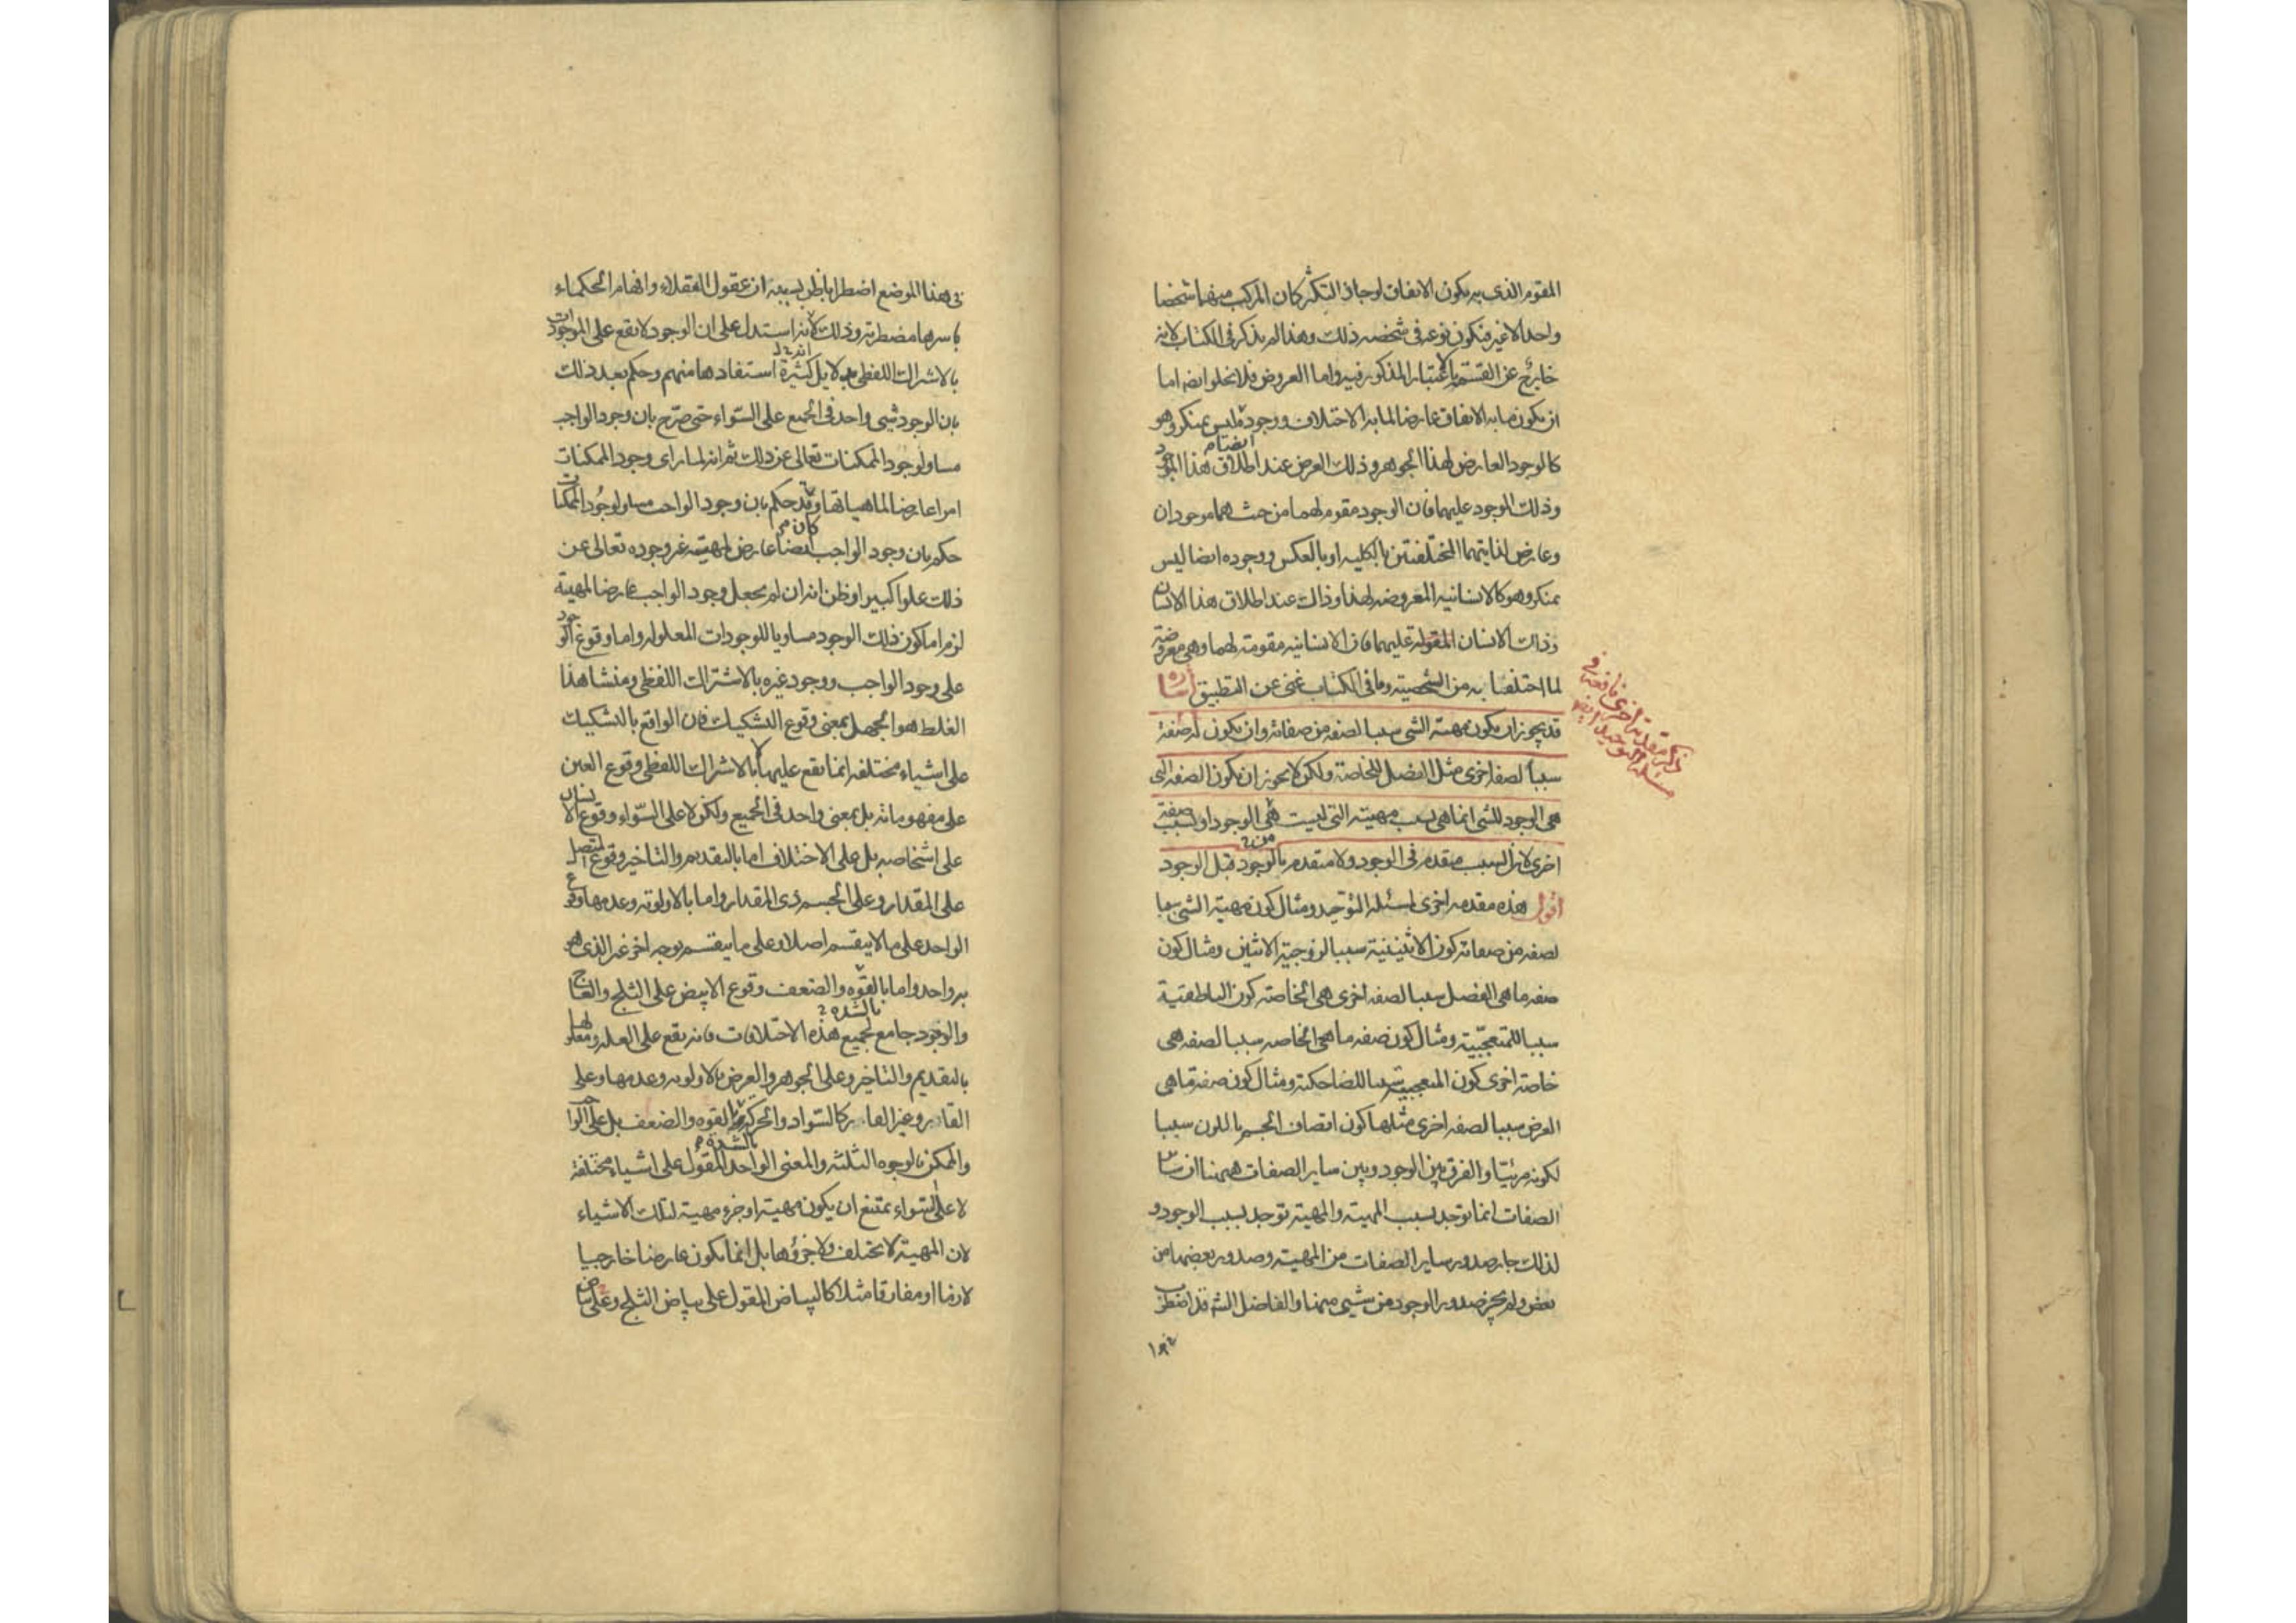 المقوم الذى به يكون الاتفاق لو جاز التكثر كان المركب منهما شخصا
واحدا لا غير فيكون نوعه فى شخصه ذلك وهذا لم يذكر فى الكتاب لانه
خارج عن القسمة بالاعتبار المذكور فيه واما العروض فلا يخلو ايضا اما
ان يكون ما به الاتفاق عارضا لما به الاختلاف ووجوده ليس بمنكر وهو
كالوجود العارض لهذا الجوهر وذلك العرض عند اطلاق هذا الموجود
وذلك الموجود عليهما فان الوجود مقوم لهما من حيث هما موجودان
وعارض لذاتيهما المختلفتين بالكليه او بالعكس ووجوده ايضا ليس
بمنكر وهو كالانسانيه المعروضه لهذا وذاك عند اطلاق هذا الانسان
وذاك الانسان المقوله عليهما فان الانسانيه مقومة لهما وهى معروضة
لما اختلفا به من الشخصية وما فى الكتاب غنى عن التطبيق اشارة
قد يجوز ان يكون مهية الشى سببا لصفه من صفاته وان يكون له صفة
سببا لصفه اخرى مثل الفصل للخاصة ولكن لا يجوز ان تكون الصفه التى
هى الوجود للشى انما هى بسبب مهيته التى ليست هى الوجود او بسبب صفة
اخرى لان السبب متقدم فى الوجود ولا متقدم بالوجود قبل الوجود
اقول هذه مقدمه اخرى لمسئله التوحيد ومثال كون مهية الشى سببا
لصفه من صفاته كون الاثنينية سببا لزوجية الاثنين ومثال كون
صفه ما هى الفصل سببا لصفه اخرى هى الخاصة كون الناطقية
سببا للمتعجبية ومثال كون صفه ما هى الخاصه سببا لصفه هى
خاصة اخرى كون المتعجبية سببا للضاحكية ومثال كون صفة ما هى
العرض سببا لصفه اخرى مثلها كون اتصاف الجسم باللون سببا
لكونه مرئيا والفرق بين الوجود وبين ساير الصفات ههنا ان ساير
الصفات انما توجد بسبب المهية والمهية توجد بسبب الوجود و
لذلك جاز صدور ساير الصفات من المهية وصدور بعضها من
بعض ولم يجز صدور الوجود من شيى منها والفاضل الشه قد اضطرب
ذكر مقدمة اخرى نافعة فى
مسئلة التوحيد ايضا
فى هذا الموضع اضطرابا ظن بسببه ان عقول العقلاء وافهام الحكماء
باسرها مضطربه وذلك لانه استدل على ان الوجود لا يقع على الموجودات
بالاشتراك اللفظى بدلايل كثيرة استفادها منهم وحكم بعد ذلك
بان الوجود شيى واحد فى الجميع على السواء حتى صرح بان وجود الواجب
مساو لوجود الممكنات تعالى عن ذلك ثم انه لما راى وجود الممكنات
امرا عارضا لماهياتها وقد حكم بان وجود الواجب مساو لوجود الممكنات
حكم بان وجود الواجب ايضا عارض لمهيته غير وجوده تعالى عن
ذلك علوا كبيرا وظن انه ان لم يجعل وجود الواجب عارضا لمهية
لزم اما كون ذلك الوجود مساويا للوجودات المعلوله واما وقوع الوجود
على وجود الواجب ووجود غيره بالاشتراك اللفظى ومنشا هذا
الغلط هو الجهل بمعنى وقوع التشكيك فان الواقع بالتشكيك
على اشياء مختلفه انما يقع عليها لا بالاشتراك اللفظى وقوع العين
على مفهوماته بل بمعنى واحد فى الجميع ولكن لا على السواء وقوع الانسان
على اشخاصه بل على الاختلاف اما بالتقديم والتاخير وقوع المتصل
على المقدار وعلى الجسم ذى المقدار واما بالاولوية وعدمها وقوع
الواحد على ما لا ينقسم اصلا وعلى ما ينقسم بوجه اخر غير الذى هو
به واحد واما بالقوه والضعف وقوع الابيض على الثلج والعاج
والوجود جامع لجميع هذه الاختلافات فانه يقع على العله ومعلولها
بالتقديم والتاخير وعلى الجوهر والعرض بالاولويه وعدمها وعلى
القار وغير القار كالسواد والحركة بالقوه والضعف بل على الواجب
والممكن بالوجوه الثلثه والمعنى الواحد المقول على اشياء مختلفة
لا على السواء يمتنع ان يكون مهية او جزء مهية لتلك الاشياء
لان المهية لا تختلف ولا جزؤها بل انما يكون عارضا خارجيا
لازما او مفارقا مثلا كالبياض المقول على بياض الثلج وعلى بياض